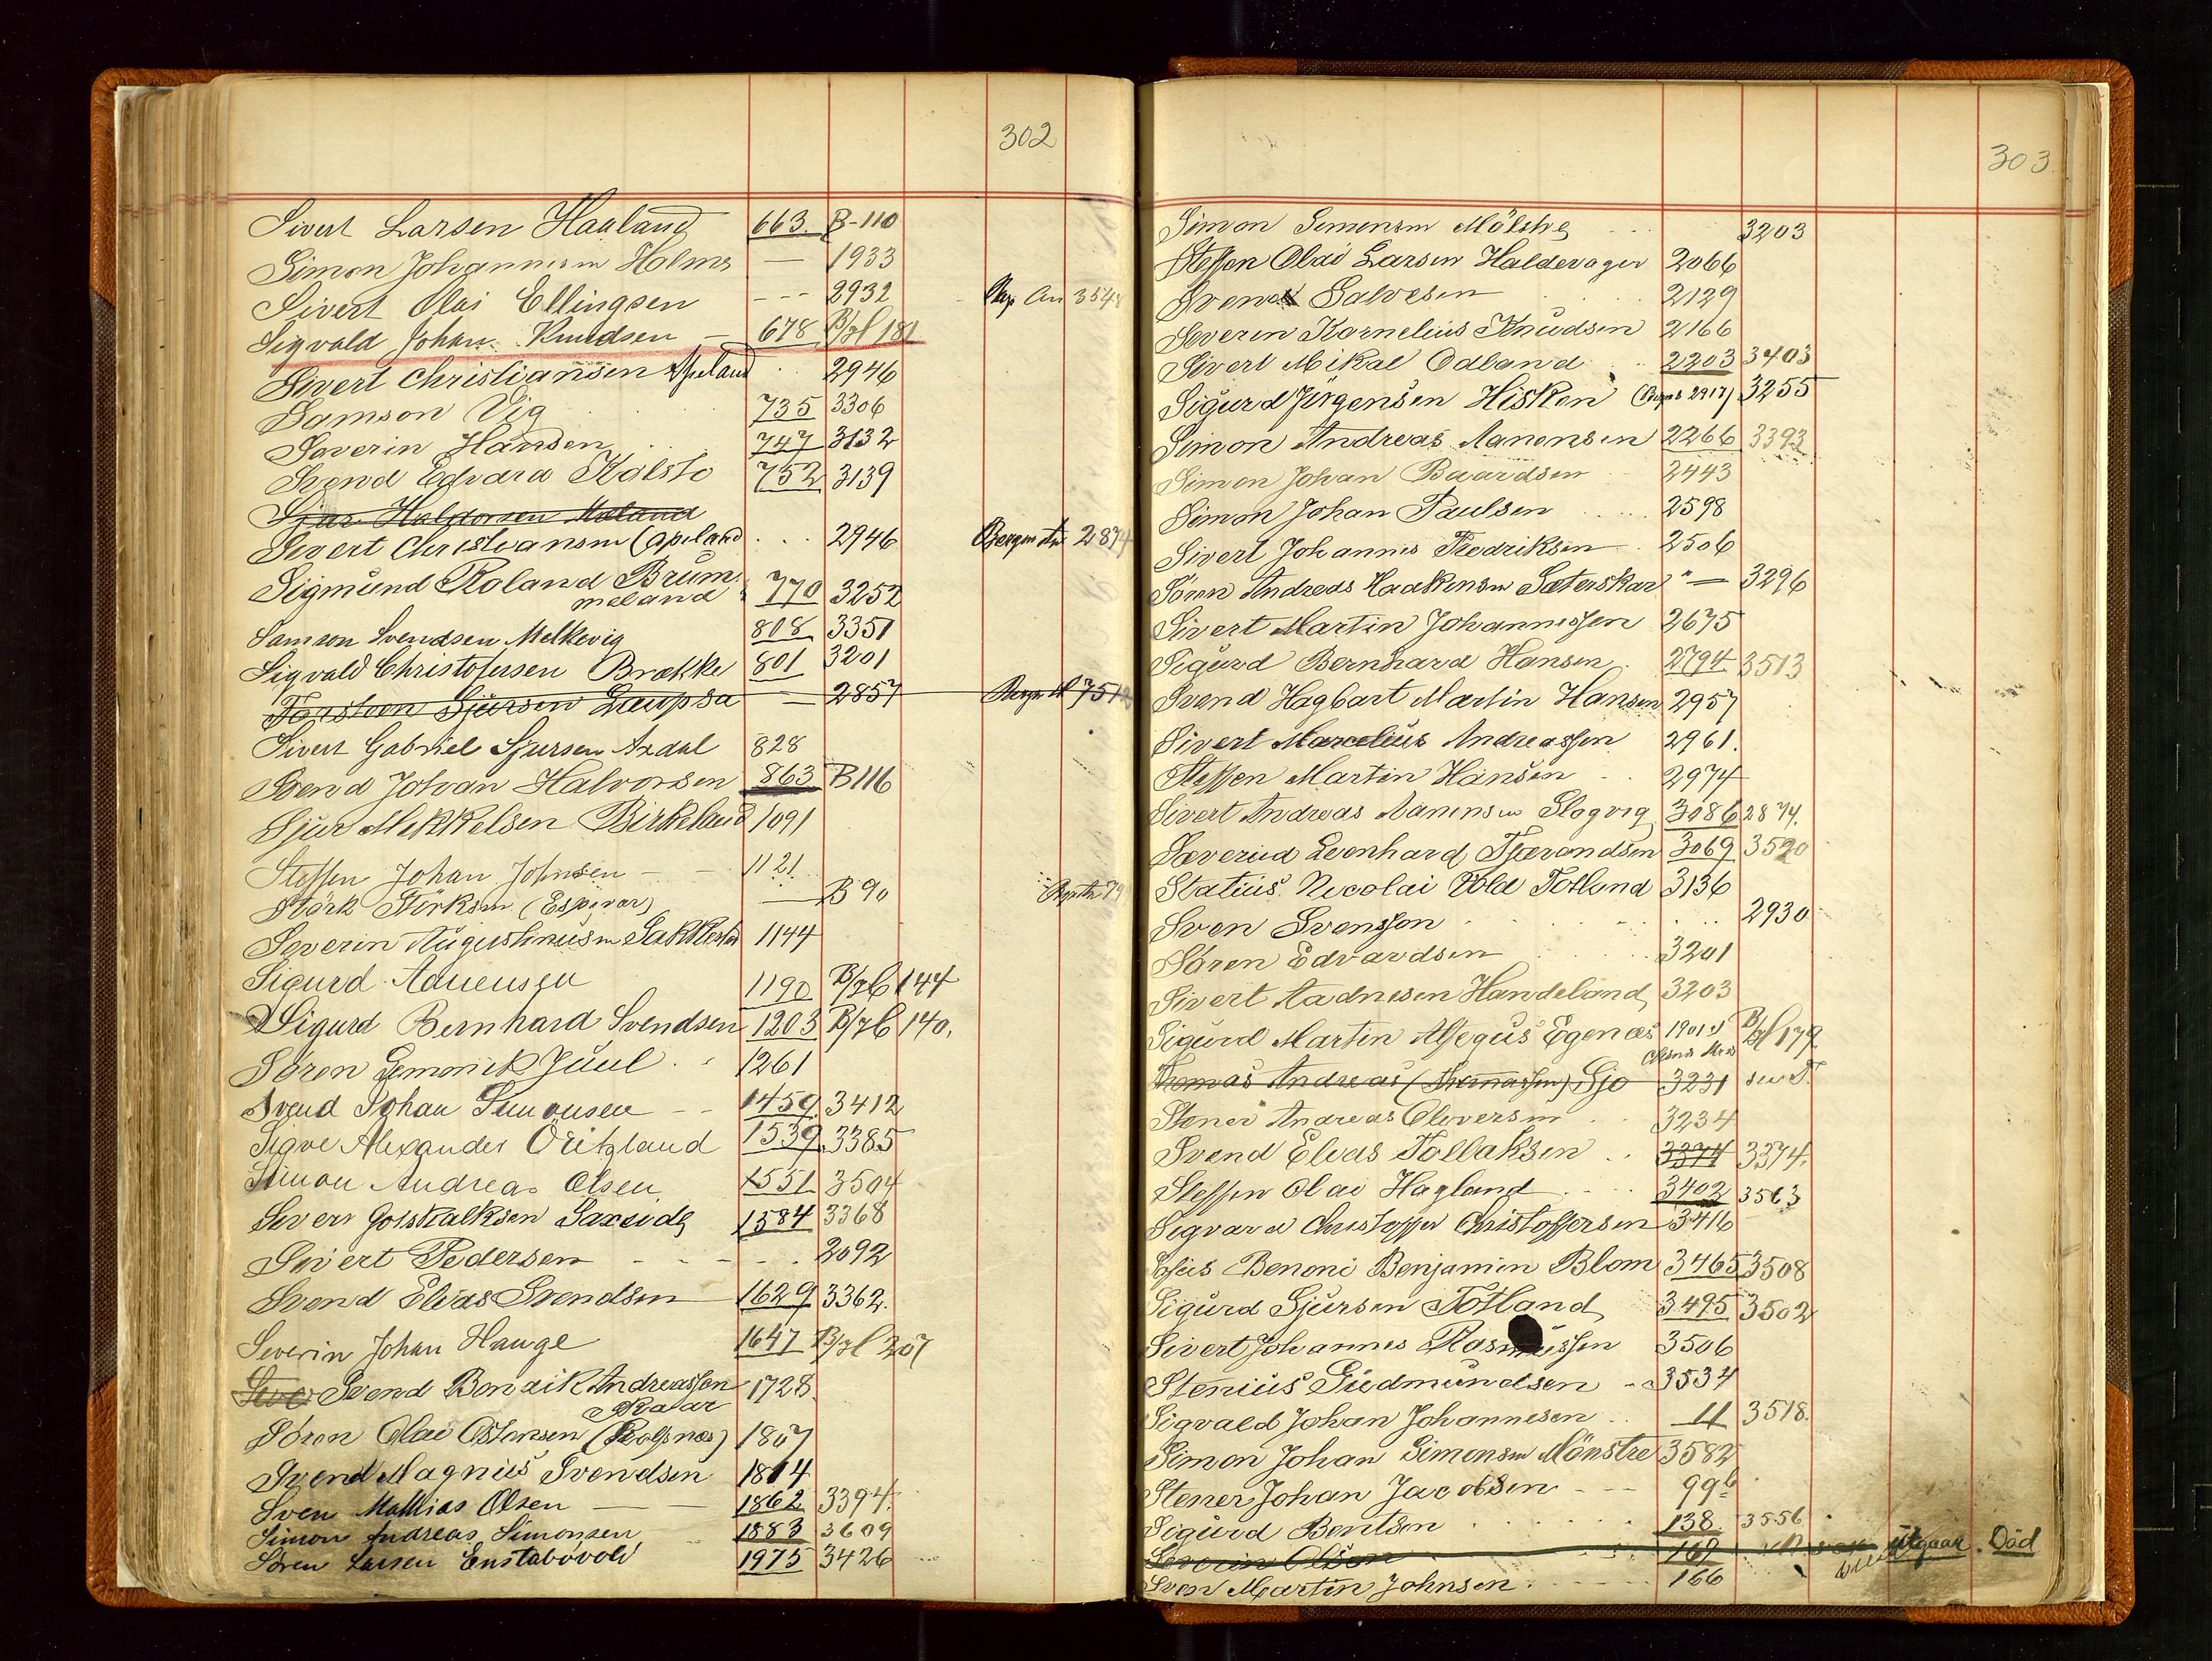 302
Sivert Larsen Haaland 663. B-110
Simon Johannesen Holms — 1933
Sivert Olai Ellingsen - - - 2932 3548
Sigvald Johan Knudsen — 678 B/bl 181
Sivert Christiansen Apeland 2946
Samson Vig 735 3306
Severin Hansen 747 3132
Svend Edvard Kolstø 752 3139
Sjur Haldorsen Moland
Sivert Christiansen (Apeland . . . 2946 2874
Sigmund Roland Brum-
meland 770 3252
Samson Svendsen Melkevig 808 3351
Sigvald Christofersen Brekke 801 3201
Torsteen Sjursen Laupsa — 2857
Sivert Gabriel Sjursen Axdal 828
Svend Johan Halvorsen 863 B 116
Sjur Mikkelsen Birkeland 1091
Steffen Johan Johnsen - - 1121
Størk Størksen (Espevær) — B 90
Severin Augustinusen 1144
Sigurd Adnensen 1190 B/bl 144
Sigurd Bernhard Svendsen 1203 B/bl 140.
Søren Juul 1261
Svend Johan Simonsen - - 1459. 3412
Sigve Alexander Öritsland 1539. 3385
Simon Andreas Olsen 1551 3504
Sivert Gotskalksen Saxeide 1584 3368
Sivert Pedersen - - - . 2092
Svend Elias Svendsen 1629 3362.
Severin Johan Hauge 1647 B/bl 207
Svend Bendik Andreassen 1728.
Søren Olai Ostensen (Rolfsnæs) 1807
Svend Magnus Svendsen 1814
Sven Mathias Olsen — — 1862 3394.
Simon Andreas Simonsen 1883 3609
Søren Larsen Enstabövold 1975 3426
303
Simon Simonsen 3203
Steffen Olai Larsen Haldevager 2066
Svend Salvesen 2129
Severin Kornelius Knudsen 2166
Sivert Mikal Odland 2203 3403
Sigurd Jörgensen Hisken ( 2917) 3255
Simon Andreas Aanensen 2266 3393
Simon Johan Baardsen 2443
Simon Johan Paulsen 2598
Sivert Johannes Fredriksen 2506
Søren Andreas Haakensen Sæterskar " — 3296
Sivert Martin Johannessen 2675
Sigurd Bernhard Hansen. 2794 3513
Svend Hagbart Martin Hansen 2957
Sivert Marcelius Andreassen 2961.
Steffen Martin Hansen 2974
Sivert Andreas Aanensen Slogvig 3086 2874.
Severin Leonhard Tjerandsen 3069 3520
Statius Nicolai Vold Totland 3136
Sven Svensson 2930
Søren Edvardsen 3201
Sivert Aadnesen Handeland 3203
Sigurd Martin Egenæs 1901 B/bl 179
Thomas Andreas (Thomassen) Gjo 3231 se T.
Stener Andreas Oliversen 3234
Svend Elias Tollaksen . . 3374 3374.
Steffen Olai Hagland 3402 3563
Sigvard Christoffer Christoffersen 3416
Benoni Benjamin Blom 3465 3508
Sigurd Sjursen Totland 3495 3502
Sivert Johannes Rasmussen 3506
Stenius Gudmundsen - 3534
Sigvald Johan Johannesen . . 11 3518.
Simon Johan Simonsen Mönstre 3582
Stener Johan Jacobsen - - - 99b
Sigurd Bentsen 138 3556
Severin Olsen 169 utgaar. Död
Sven Martin Johnsen 166